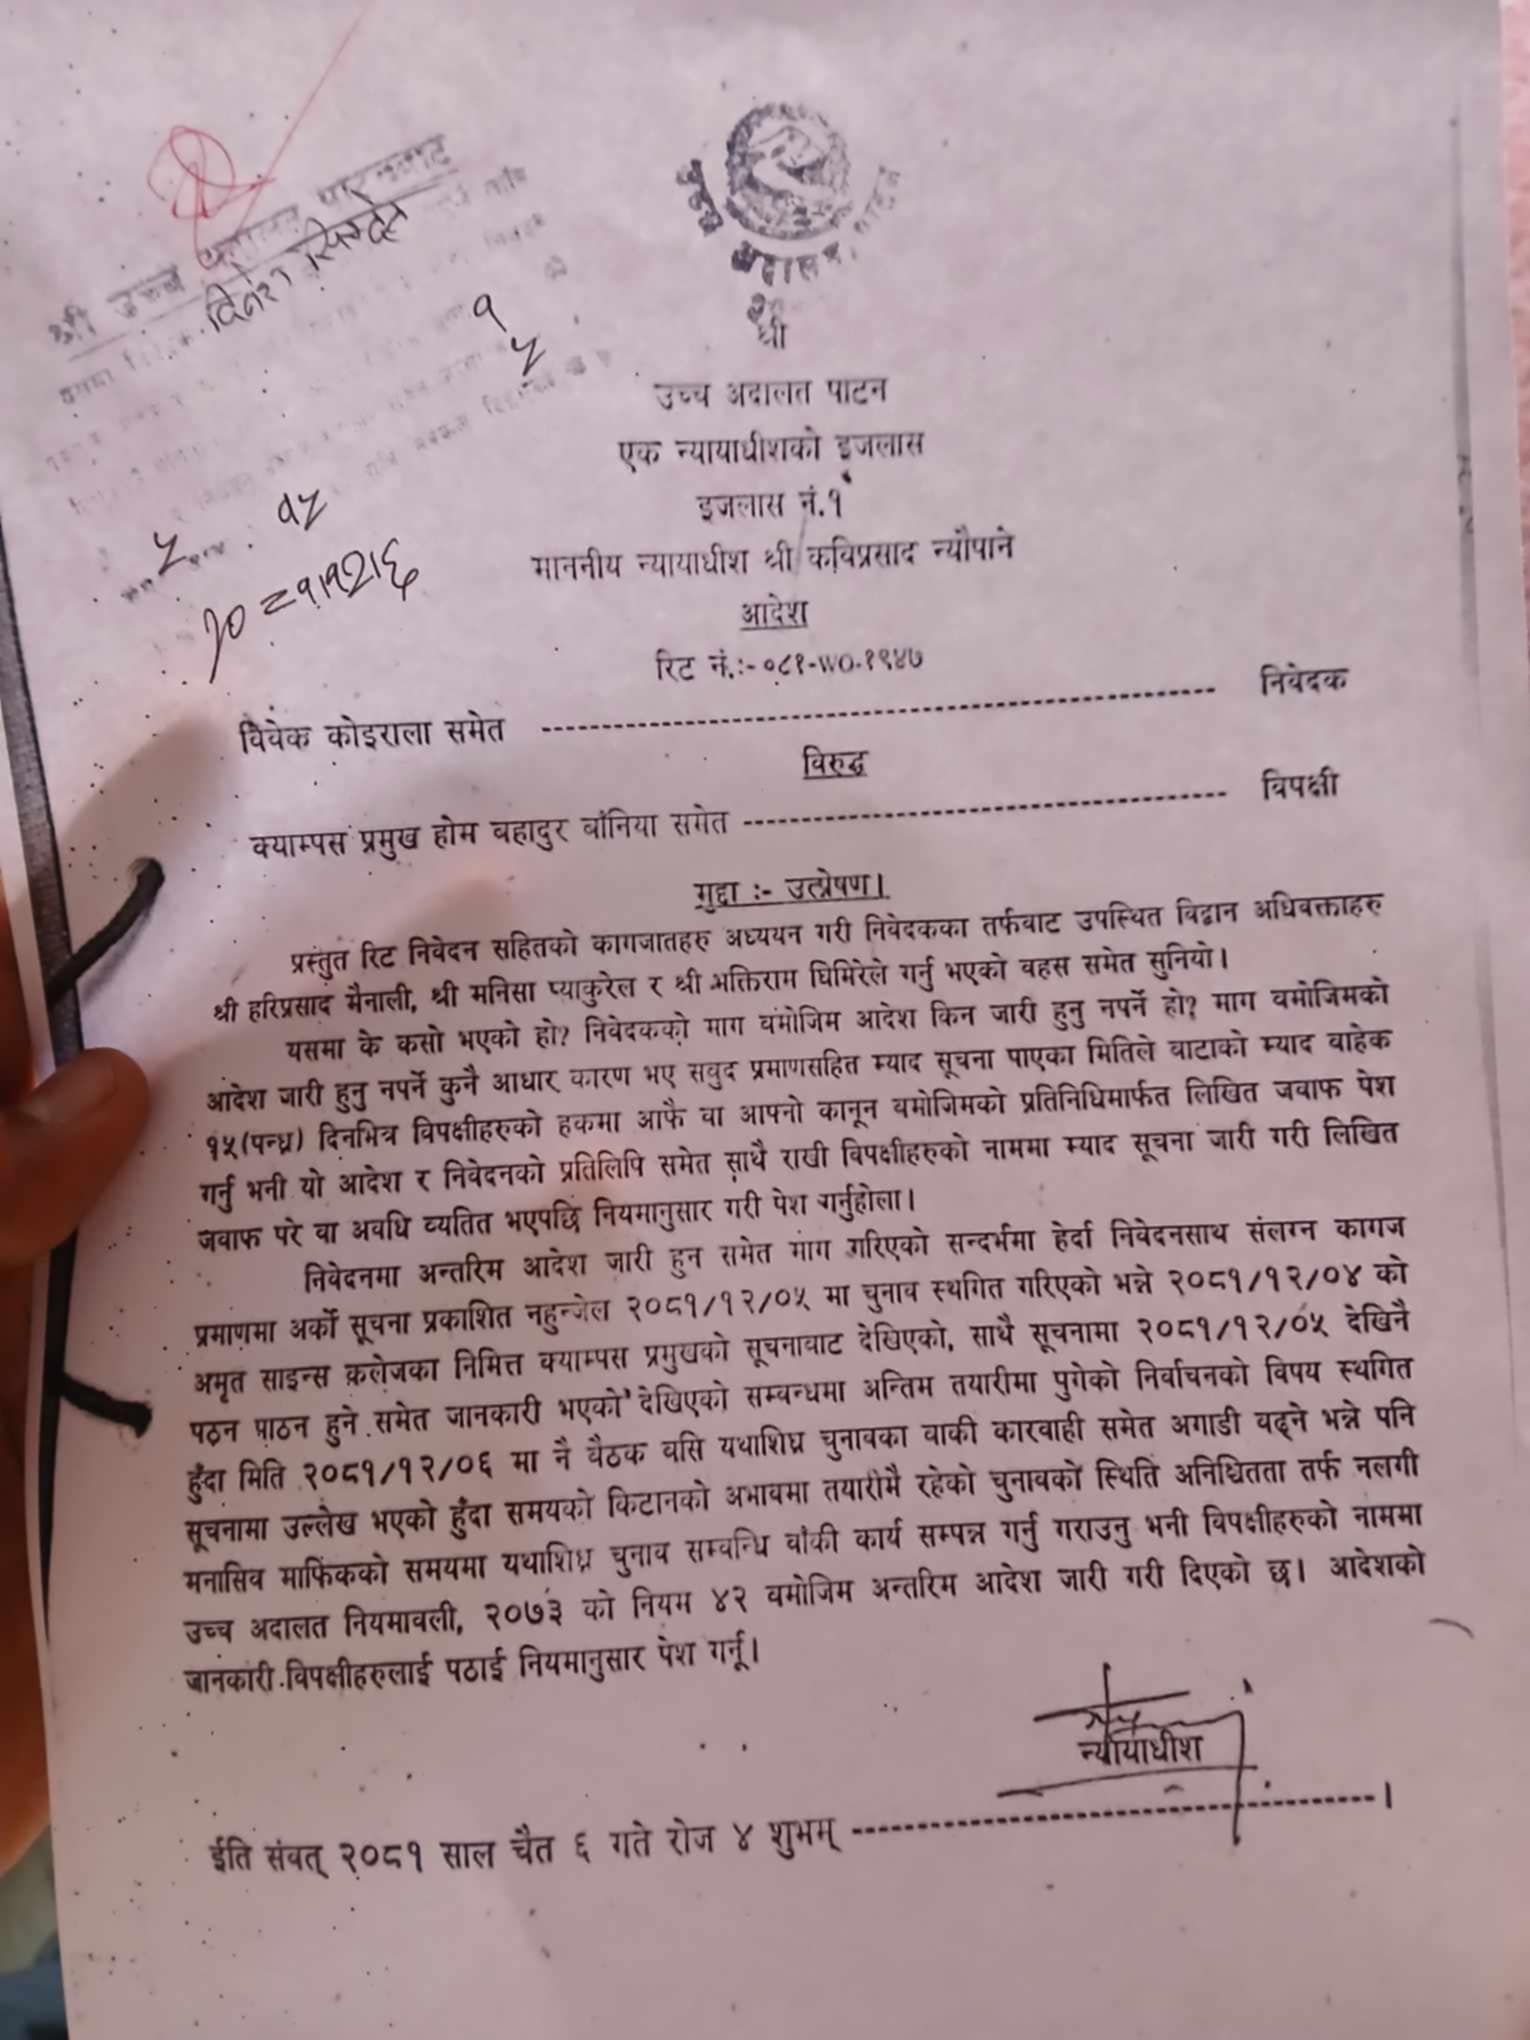 श्री उच्च अदालत पाटनबाट
उच्च अदालत, पाटन
श्री
उच्च अदालत पाटन
एक न्यायाधीशको इजलास
इजलास नं.१
माननीय न्यायाधीश श्री कविप्रसाद न्यौपाने
आदेश
२०८१।१२।६
रिट नं.:- ०८१-WO-१९४७
विवेक कोइराला समेत ---------- निवेदक
विरुद्ध
क्याम्पस प्रमुख होम बहादुर बानिया समेत ---------- विपक्षी
मुद्दा :- उत्प्रेषण।
प्रस्तुत रिट निवेदन सहितको कागजातहरु अध्ययन गरी निवेदकका तर्फबाट उपस्थित विद्वान अधिवक्ताहरु
श्री हरिप्रसाद मैनाली, श्री मनिसा प्याकुरेल र श्री भक्तिराम घिमिरेले गर्नु भएको वहस समेत सुनियो।
यसमा के कसो भएको हो? निवेदकको माग बमोजिम आदेश किन जारी हुनु नपर्ने हो? माग बमोजिमको
आदेश जारी हुनु नपर्ने कुनै आधार कारण भए सबुद प्रमाणसहित म्याद सूचना पाएका मितिले बाटाको म्याद बाहेक
१५(पन्ध्र) दिनभित्र विपक्षीहरुको हकमा आफै वा आफ्नो कानून बमोजिमको प्रतिनिधिमार्फत लिखित जवाफ पेश
गर्नु भनी यो आदेश र निवेदनको प्रतिलिपि समेत साथै राखी विपक्षीहरुको नाममा म्याद सूचना जारी गरी लिखित
जवाफ परे वा अवधि व्यतित भएपछि नियमानुसार गरी पेश गर्नुहोला।
निवेदनमा अन्तरिम आदेश जारी हुन समेत माग गरिएको सन्दर्भमा हेर्दा निवेदनसाथ संलग्न कागज
प्रमाणमा अर्को सूचना प्रकाशित नहुन्जेल २०८१/१२/०५ मा चुनाव स्थगित गरिएको भन्ने २०८१/१२/०४ को
अमृत साइन्स कलेजका निमित्त क्याम्पस प्रमुखको सूचनाबाट देखिएको, साथै सूचनामा २०८१/१२/०५ देखिनै
पठन पाठन हुने समेत जानकारी भएको देखिएको सम्बन्धमा अन्तिम तयारीमा पुगेको निर्वाचनको विषय स्थगित
हुँदा मिति २०८१/१२/०६ मा नै बैठक बसि यथाशिघ्र चुनावका बाकी कारवाही समेत अगाडी बढ्ने भन्ने पनि
सूचनामा उल्लेख भएको हुँदा समयको किटानको अभावमा तयारीमै रहेको चुनावको स्थिति अनिश्चितता तर्फ नलगी
मनासिव माफिकको समयमा यथाशिघ्र चुनाव सम्बन्धि बाँकी कार्य सम्पन्न गर्नु गराउनु भनी विपक्षीहरुको नाममा
उच्च अदालत नियमावली, २०७३ को नियम ४२ बमोजिम अन्तरिम आदेश जारी गरी दिएको छ। आदेशको
जानकारी विपक्षीहरुलाई पठाई नियमानुसार पेश गर्नू।
न्यायाधीश
ईति संवत् २०८१ साल चैत ६ गते रोज ४ शुभम् ----------।